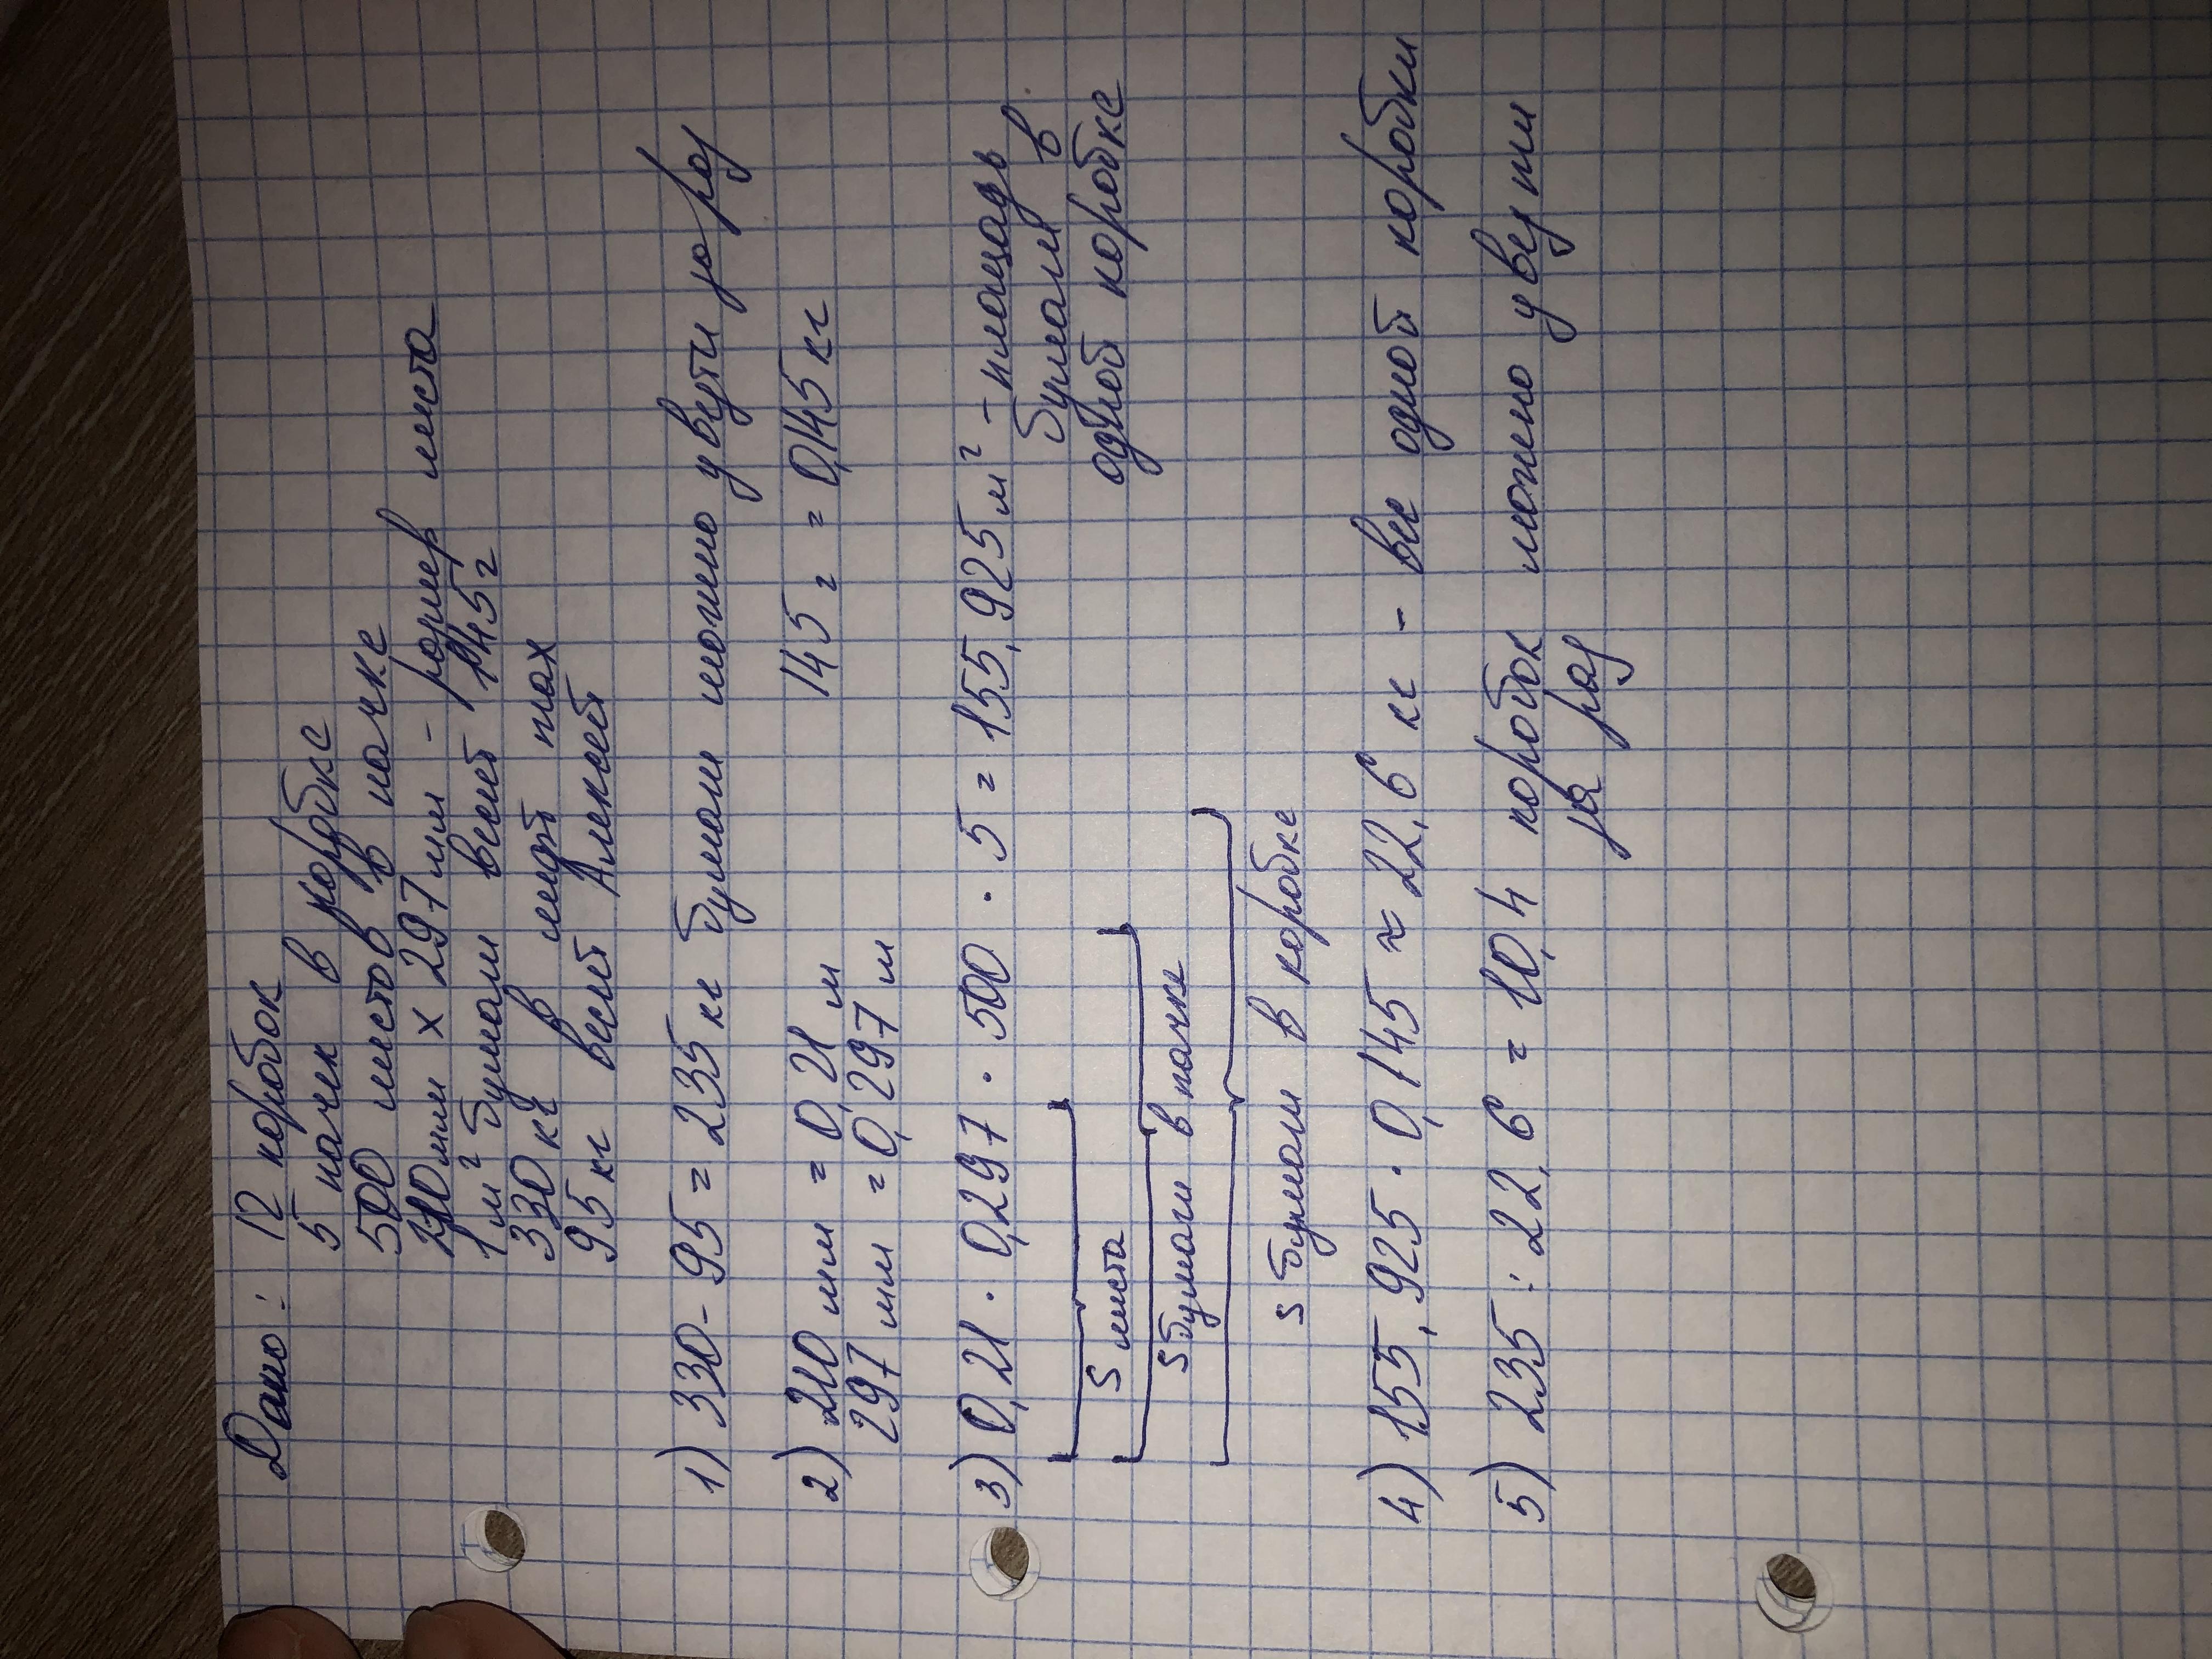 Дано: 12 коробок
5 пачек в коробке
500 листов в пачке
210 мм х 297 мм - размер листа
1 м² бумаги весит 145 г
330 кг в лифт max
95 кг весит Алексей
1) 330 - 95 = 235 кг бумаги можно увезти за раз
2) 210 мм = 0,21 м 145 г = 0,145 кг
297 мм = 0,297 м
3) 0,21 · 0,297 · 500 · 5 = 155,925 м² - площадь
бумаги в
одной коробке
S листа
S бумаги в пачке
S бумаги в коробке
4) 155,925 · 0,145 ≈ 22,6 кг - вес одной коробки
5) 235 : 22,6 = 10,4 коробок можно увезти
за раз